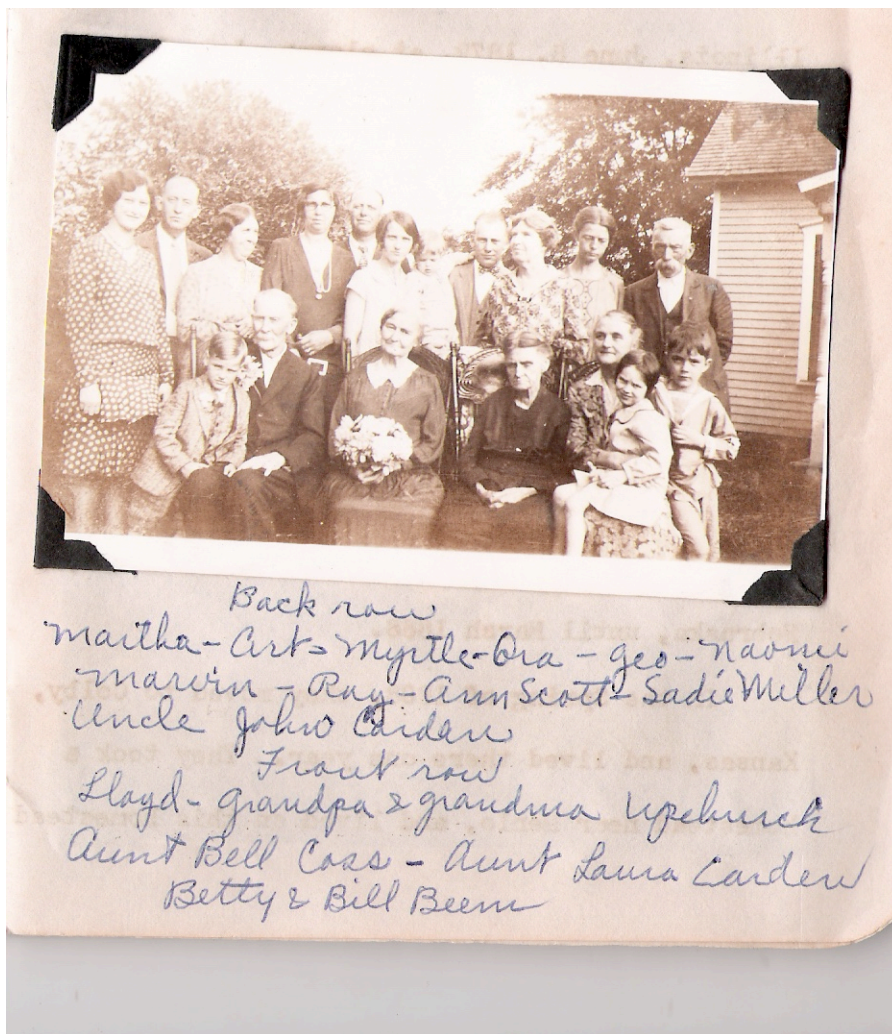 Back row
Martha - Art - Myrtle - Ora - Geo - Naomi
Marvin - Ray - Ann Scott - Sadie Miller
Uncle John Carden
Front row
Lloyd - Grandpa & Grandma Upchurch
Aunt Bell Coss - Aunt Laura Carden
Betty & Bill Beem